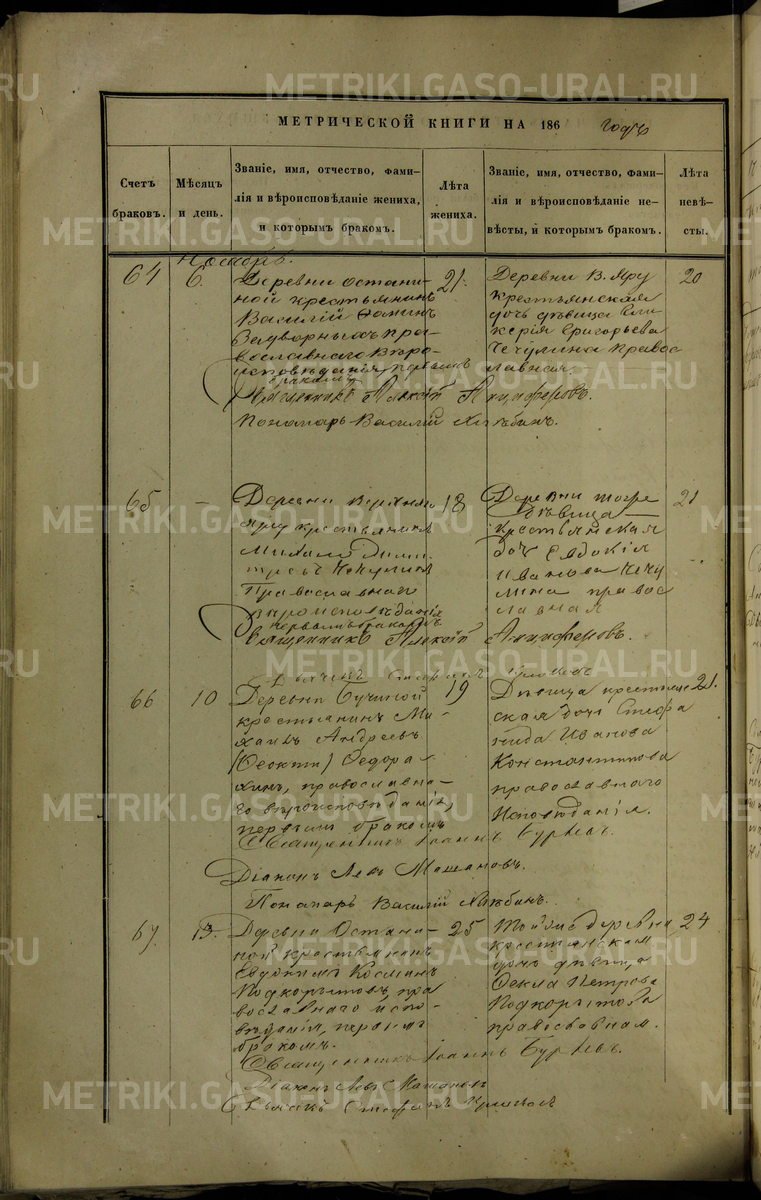 МЕТРИЧЕСКОЙ КНИГИ НА 186 годъ
Счетъ браковъ.
Мѣсяцъ и день.
Званіе, имя, отчество, фами-
лія и вѣроисповѣданіе жениха,
и которымъ бракомъ.
Лѣта жениха.
Званіе, имя, отчество, фами-
лія и вѣроисповѣданіе не-
вѣсты, и которымъ бракомъ.
Лѣта невѣ-
сты.
Ноябрь.
64
6
Деревни Остани-
ной крестьянинъ
Василій
Задворныхъ пра-
вославнаго вѣро-
исповѣданія, первымъ
бракомъ
21
Деревни В. Яру
крестьянская
дочь дѣвица Гли-
керія Григорьева
Чечулина правос
лавная.
20
Священникъ Алексѣй Анциферовъ.
Пономарь Василій Хлѣбинъ.
65
-
Деревни Верхняго
яру крестьянинъ
Михаилъ Дими-
Чечулинъ
Православнаго
вѣроисповѣданія
первымъ бракомъ
18
Деревни тоже
дѣвица
крестьянская
доч Евдокія
Иванова Чечу
лина правос
лавная
21
Священникъ Алексѣй Анциферовъ.
66
10
Деревни
крестьянинъ Ми-
хаилъ Андреевъ
православна-
го вѣроисповѣданія,
первымъ бракомъ
19
Дѣвица крестьян
ская дочь Стефа
нида Иванова
Константинова
православнаго
Исповѣданія.
21.
Священникъ Іоаннъ
Діаконъ Левъ
Пономарь Василій Хлѣбинъ.
67
13.
Деревни Остани-
ной крестьянинъ
Евдокимъ Косминъ
Подкорытовъ, пра
вославнаго испо-
вѣданія, первымъ
бракомъ.
25
Той же деревни
крестьянская
дочь дѣвица
Фекла Петрова
Подкорытова
православная.
24
Священникъ Іоаннъ
Діаконъ Левъ
METRIKI.GASO-URAL.RU